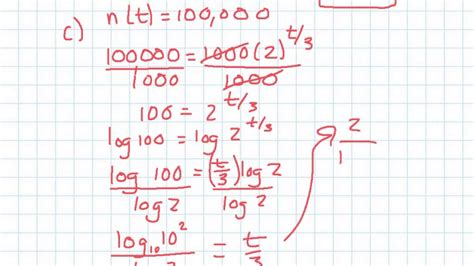 c) n(t) = 100,000
100000 = 1000(2)^t/3
1000 1000
100 = 2^t/3
log 100 = log 2^t/3
log 100 = (t/3) log 2
log 2 log 2
log₁₀10² = t/3
2
1